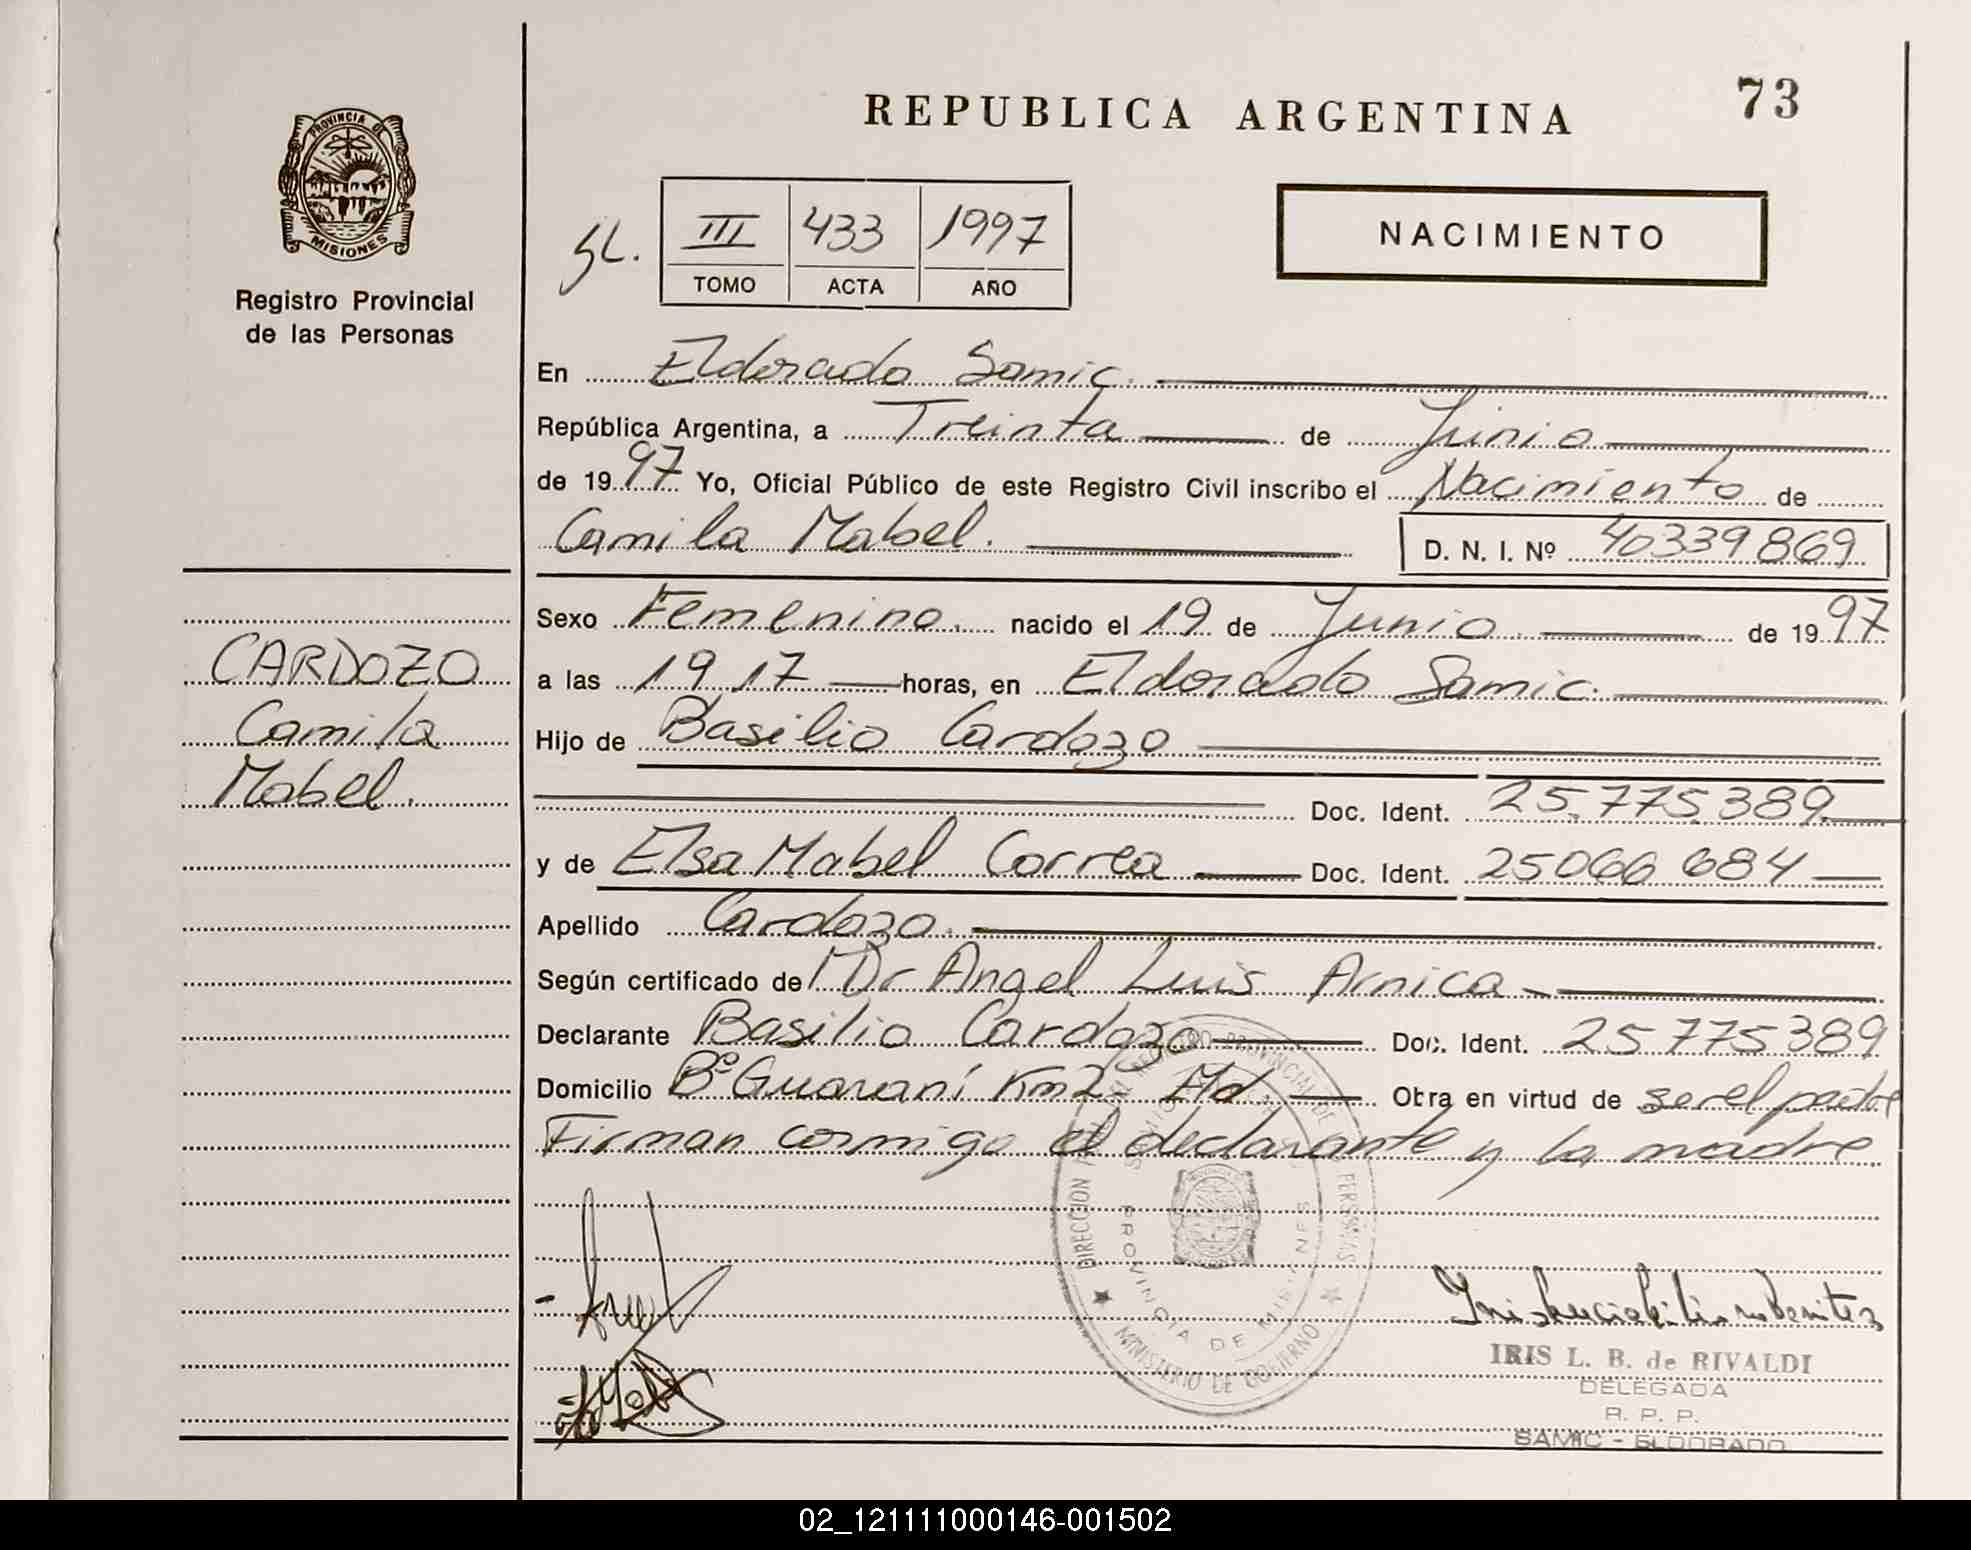 PROVINCIA DE
MISIONES
Registro Provincial
de las Personas
CARDOZO
Camila
Mabel.
REPUBLICA ARGENTINA
73
III 433 1997
TOMO ACTA AÑO
NACIMIENTO
En Eldorado Samic.
República Argentina, a Treinta de Junio
de 1997 Yo, Oficial Público de este Registro Civil inscribo el Nacimiento de
Camila Mabel. D. N. I. Nº 40339869
Sexo Femenino. nacido el 19 de Junio. de 1997
a las 19 17 horas, en Eldorado Samic.
Hijo de Basilio Cardozo
Doc. Ident. 25.775.389
y de Elsa Mabel Correa Doc. Ident. 25066 684
Apellido Cardozo.
Según certificado de Dr Angel Luis Arnica
Declarante Basilio Cardozo Doc. Ident. 25 775 389
Domicilio Bº Guaraní Km2 Otra en virtud de ser el padre
Firman conmigo el declarante y la madre
PROVINCIA DE MISIONES
MINISTERIO DE GOBIERNO
IRIS L. B. de RIVALDI
DELEGADA
R. P. P.
SAMIC - ELDORADO
02_121111000146-001502